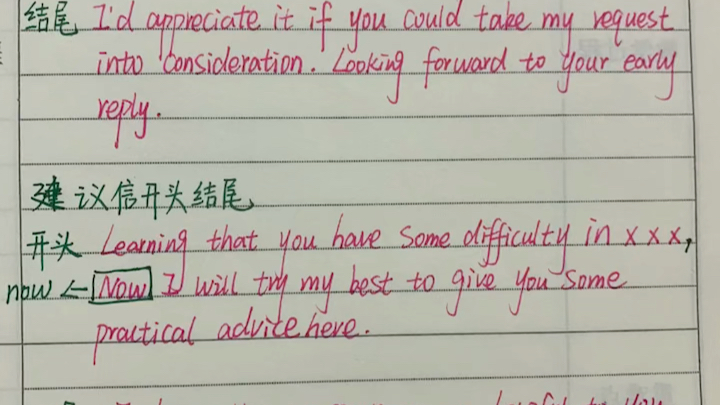 结尾 I'd appreciate it if you could take my request
into consideration. Looking forward to your early
reply.
建议信开头结尾
开头 Learning that you have some difficulty in x x x,
now ← Now I will try my best to give you some
practical advice here.
to you